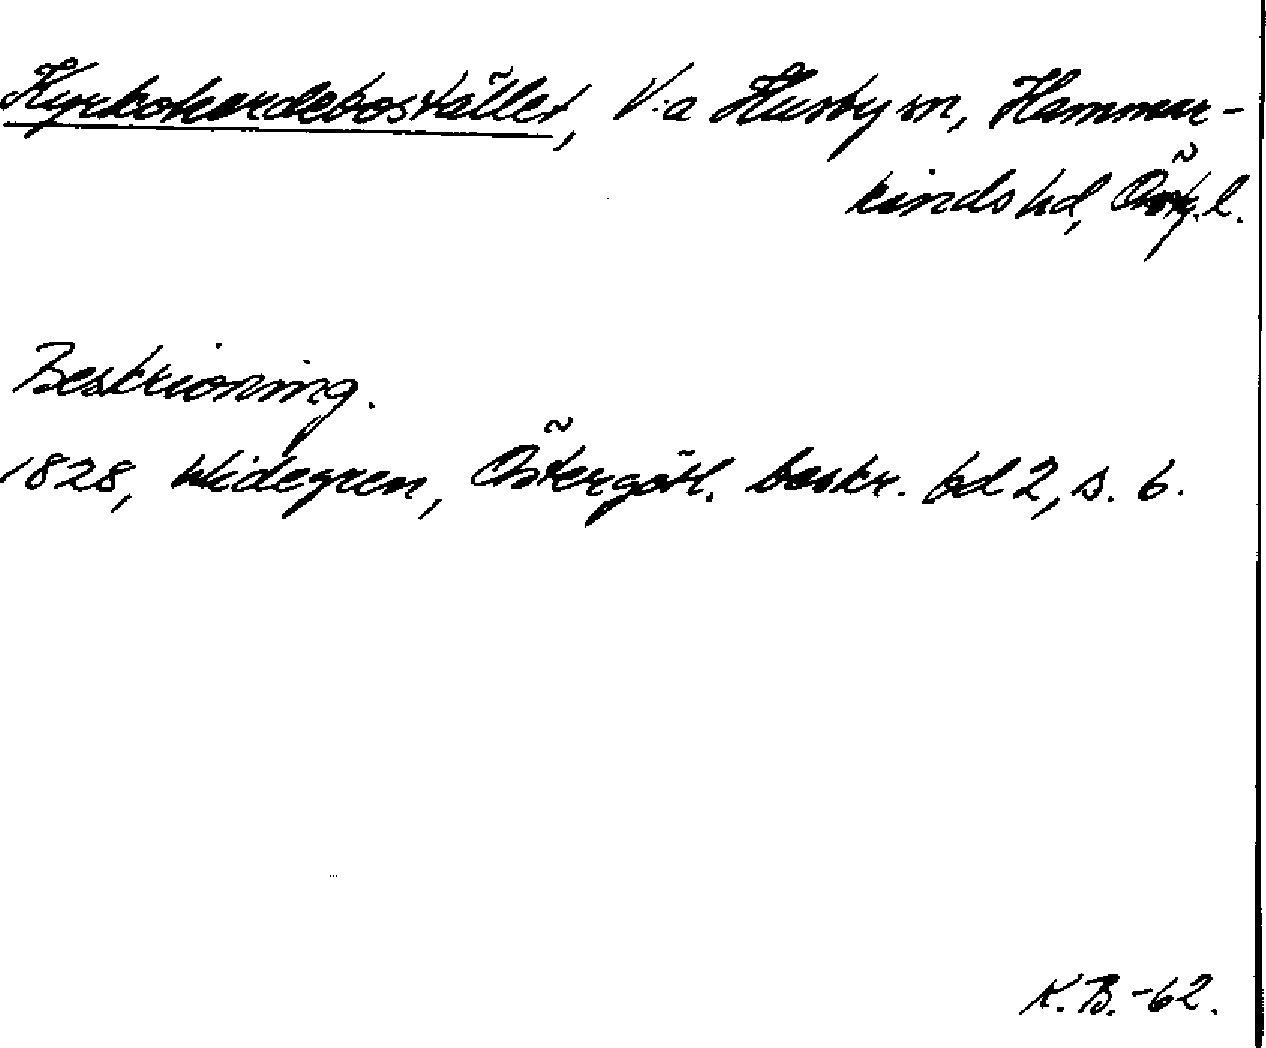 Kyrkoherdebostället, V:a Husby sn, Hammar-
kinds hd, Östg.l.
Beskrivning.
1828, Widegren, Östergötl. beskr. bd 2, s. 6.
K.B.-62.